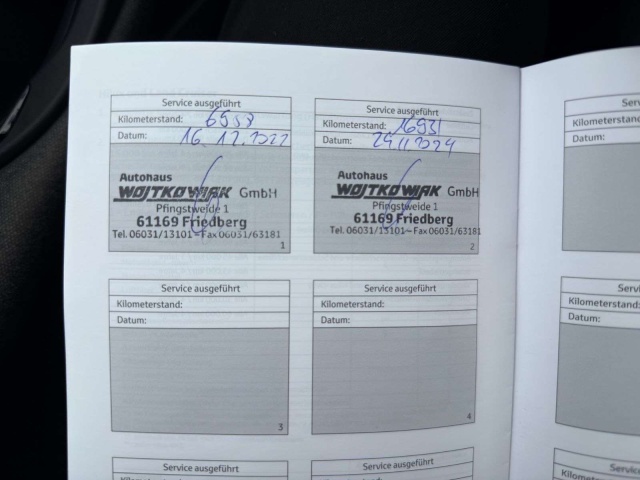 Service ausgeführt
Kilometerstand: 6558
Datum: 16.12.2022
Autohaus
WOJTKOWIAK GmbH
Pfingstweide 1
61169 Friedberg
Tel. 06031/13101 – Fax 06031/63181
1
Service ausgeführt
Kilometerstand: 16931
Datum: 29.11.2024
Autohaus
WOJTKOWIAK GmbH
Pfingstweide 1
61169 Friedberg
Tel. 06031/13101 – Fax 06031/63181
2
Service ausgeführt
Kilometerstand:
Datum:
3
Service ausgeführt
Kilometerstand:
Datum:
4
Service ausgeführt
Kilometerstand:
Service ausgeführt
Kilometerstand:
Datum:
Kilometerstand
Datum: